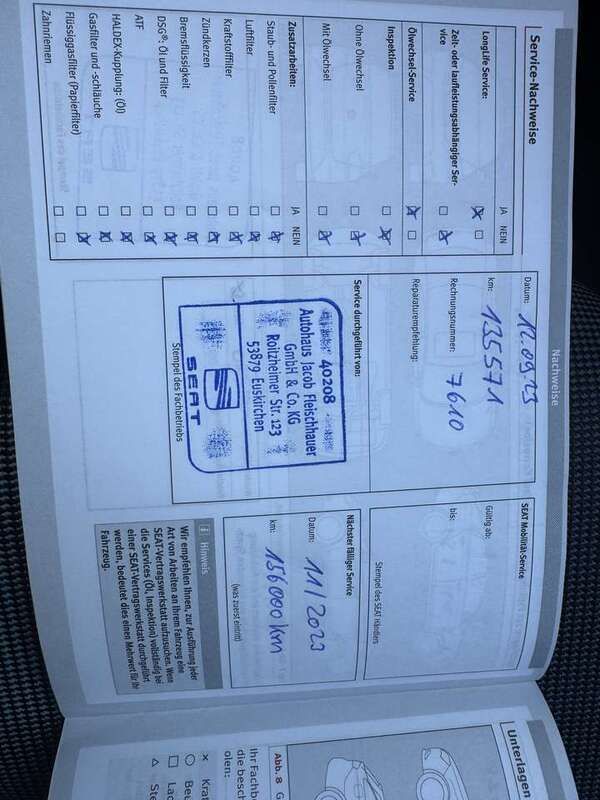 Nachweise
Service-Nachweise
JA NEIN
LongLife Service:
Zeit- oder laufleistungsabhängiger Ser-
vice
Ölwechsel-Service
Inspektion
Ohne Ölwechsel
Mit Ölwechsel
Zusatzarbeiten: JA NEIN
Staub- und Pollenfilter
Luftfilter
Kraftstofffilter
Zündkerzen
Bremsflüssigkeit
DSG®: Öl und Filter
ATF
HALDEX-Kupplung: (Öl)
Gasfilter und -schläuche
Flüssiggasfilter (Papierfilter)
Zahnriemen
Datum: 12.09.23
km: 135571
Rechnungsnummer: 7610
Reparaturempfehlung:
Service durchgeführt von:
40208
Autohaus Jacob Fleischhauer
GmbH & Co. KG
Roitzheimer Str. 123
53879 Euskirchen
SEAT
Stempel des Fachbetriebs
SEAT Mobilität-Service
Gültig ab:
bis:
Stempel des SEAT Händlers
Nächster fälliger Service
Datum: 11/2023
km: 156000 km
(was zuerst eintritt)
i Hinweis
Wir empfehlen Ihnen, zur Ausführung jeder
Art von Arbeiten an Ihrem Fahrzeug eine
SEAT-Vertragswerkstatt aufzusuchen. Wenn
die Services (Öl, Inspektion) vollständig bei
einer SEAT-Vertragswerkstatt durchgeführt
werden, bedeutet dies einen Mehrwert für Ihr
Fahrzeug.
Unterlagen
Abb. 8
Ihr Fachb
die besch
olen: